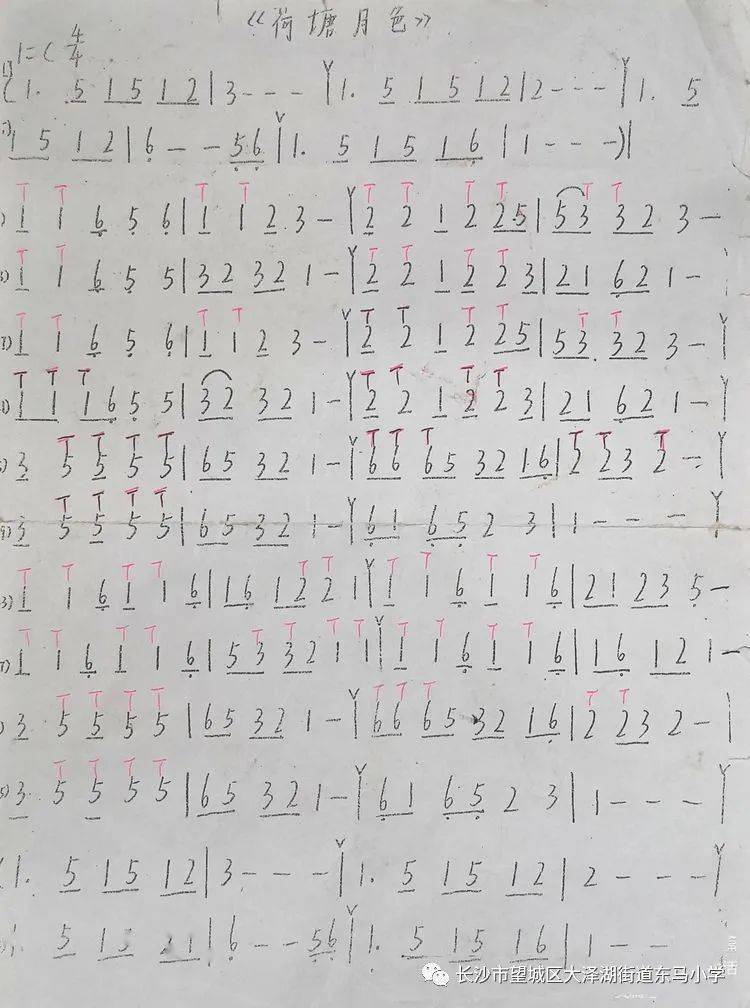 《荷塘月色》
1=C 4/4
(1. 5 1 5 1 2 | 3 - - - | 1. 5 1 5 1 2 | 2 - - - | 1. 5
1 5 1 2 | 6 - - 5 6 | 1. 5 1 5 1 6 | 1 - - -) |
1 1 6 5 6 | 1 1 2 3 - | 2 2 1 2 2 5 | 5 3 3 2 3 -
1 1 6 5 5 | 3 2 3 2 1 - | 2 2 1 2 2 3 | 2 1 6 2 1 - |
1 1 6 5 6 | 1 1 2 3 - | 2 2 1 2 2 5 | 5 3 3 2 3 - |
1 1 1 6 5 5 | 3 2 3 2 1 - | 2 2 1 2 2 3 | 2 1 6 2 1 - |
3 5 5 5 5 | 6 5 3 2 1 - | 6 6 6 5 3 2 1 6 | 2 2 3 2 - |
3 5 5 5 5 | 6 5 3 2 1 - | 6 1 6 5 2 3 | 1 - - - |
1 1 6 1 1 6 | 1 6 1 2 2 1 | 1 1 6 1 1 6 | 2 1 2 3 5 -
1 1 6 1 1 6 | 5 3 3 2 1 1 | 1 1 6 1 1 6 | 1 6 1 2 1 -
3 5 5 5 5 | 6 5 3 2 1 - | 6 6 6 5 3 2 1 6 | 2 2 3 2 - |
3 5 5 5 5 | 6 5 3 2 1 - | 6 1 6 5 2 3 | 1 - - - |
(1. 5 1 5 1 2 | 3 - - - | 1. 5 1 5 1 2 | 2 - - - |
5 1 | 6 - - 5 6 | 1. 5 1 5 1 6 | 1 - -
长沙市望城区大泽湖街道东马小学